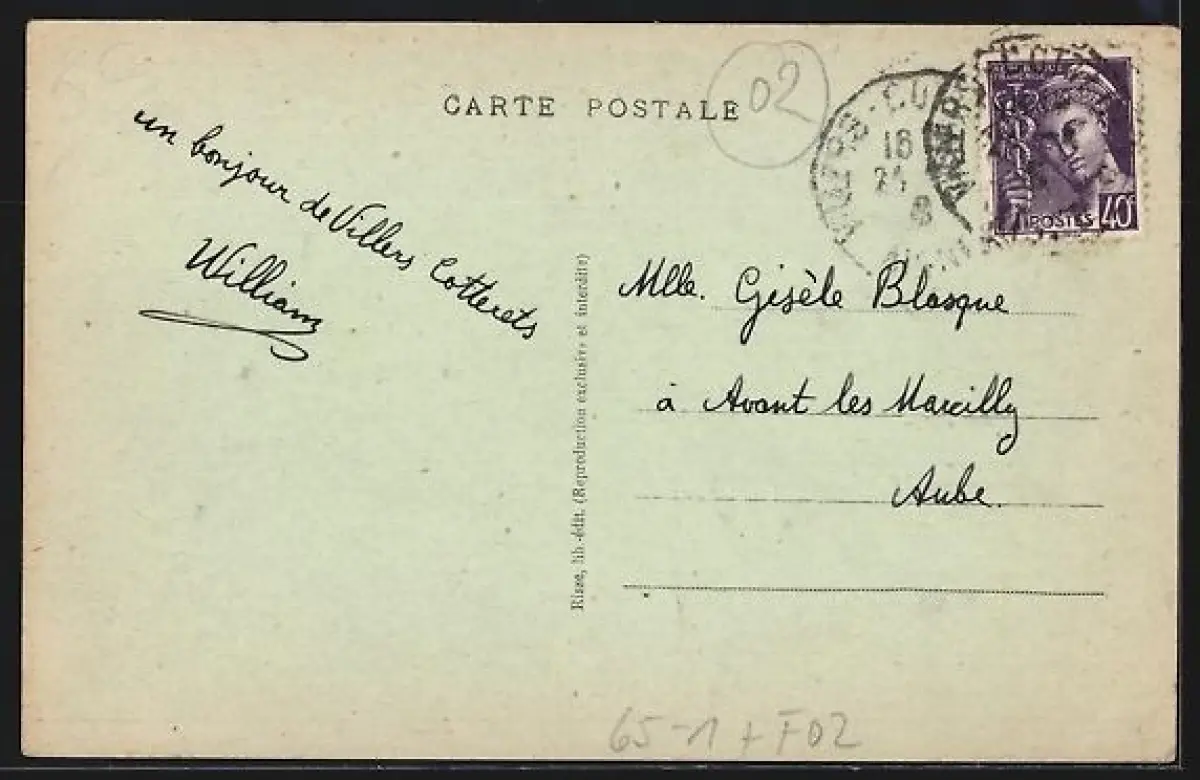 CARTE POSTALE
02
un bonjour de Villers Cotterets
William
VILLERS-CO
16
24
8
RÉPUBLIQUE FRANÇAISE
POSTES 40c
Mlle. Gisèle Blasque
à Avant les Marcilly
Aube.
Risse, lib.-édit. (Reproduction exclusive et interdite)
65-1 + F02